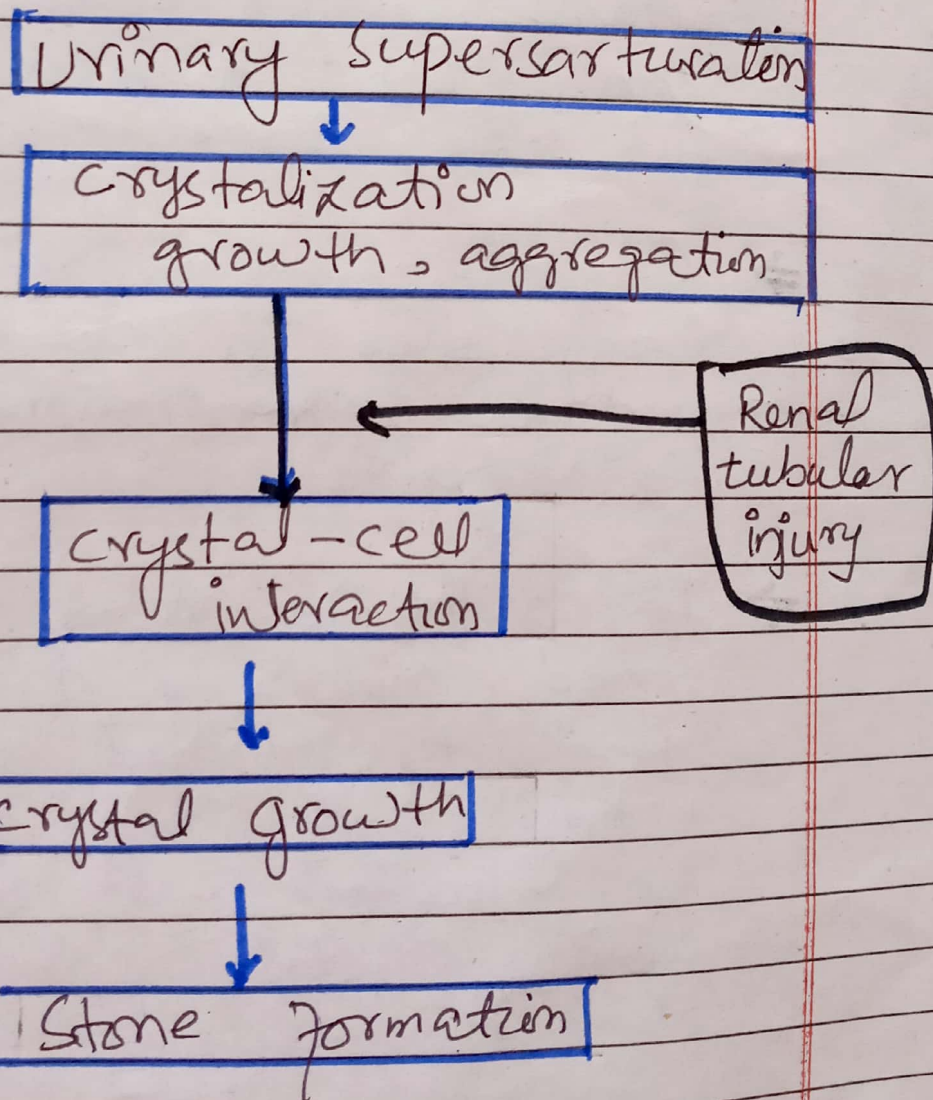 Urinary supersarturation
crystalization
growth, aggregation
Renal
tubular
injury
crystal-cell
interaction
crystal growth
Stone formation